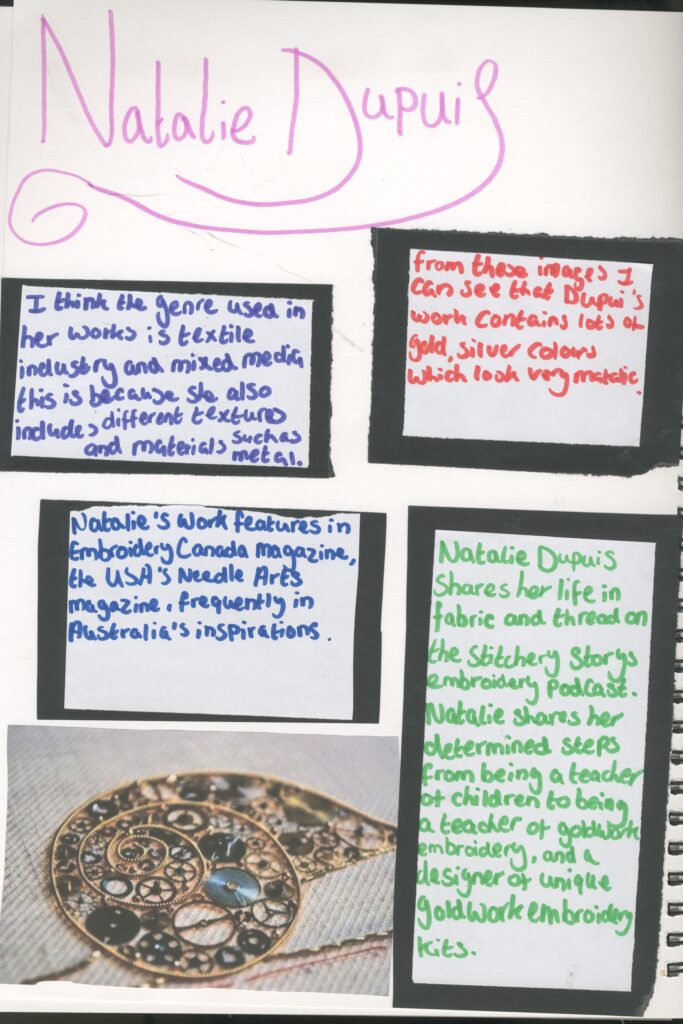 Natalie Dupuis
I think the genre used in
her works is textile
industry and mixed media
this is because she also
includes different textures
and materials such as
metal.
from these images I
can see that Dupui's
work contains lots of
gold, silver colours
which look very matalic.
Natalie's work features in
Embroidery Canada magazine,
the USA's Needle Arts
magazine, frequently in
Australia's inspirations.
Natalie Dupuis
Shares her life in
fabric and thread on
the Stitchery Storys
embroidery podcast.
Natalie shares her
determined steps
from being a teacher
of children to being
a teacher of goldwork
embroidery, and a
designer of unique
goldwork embroidery
kits.